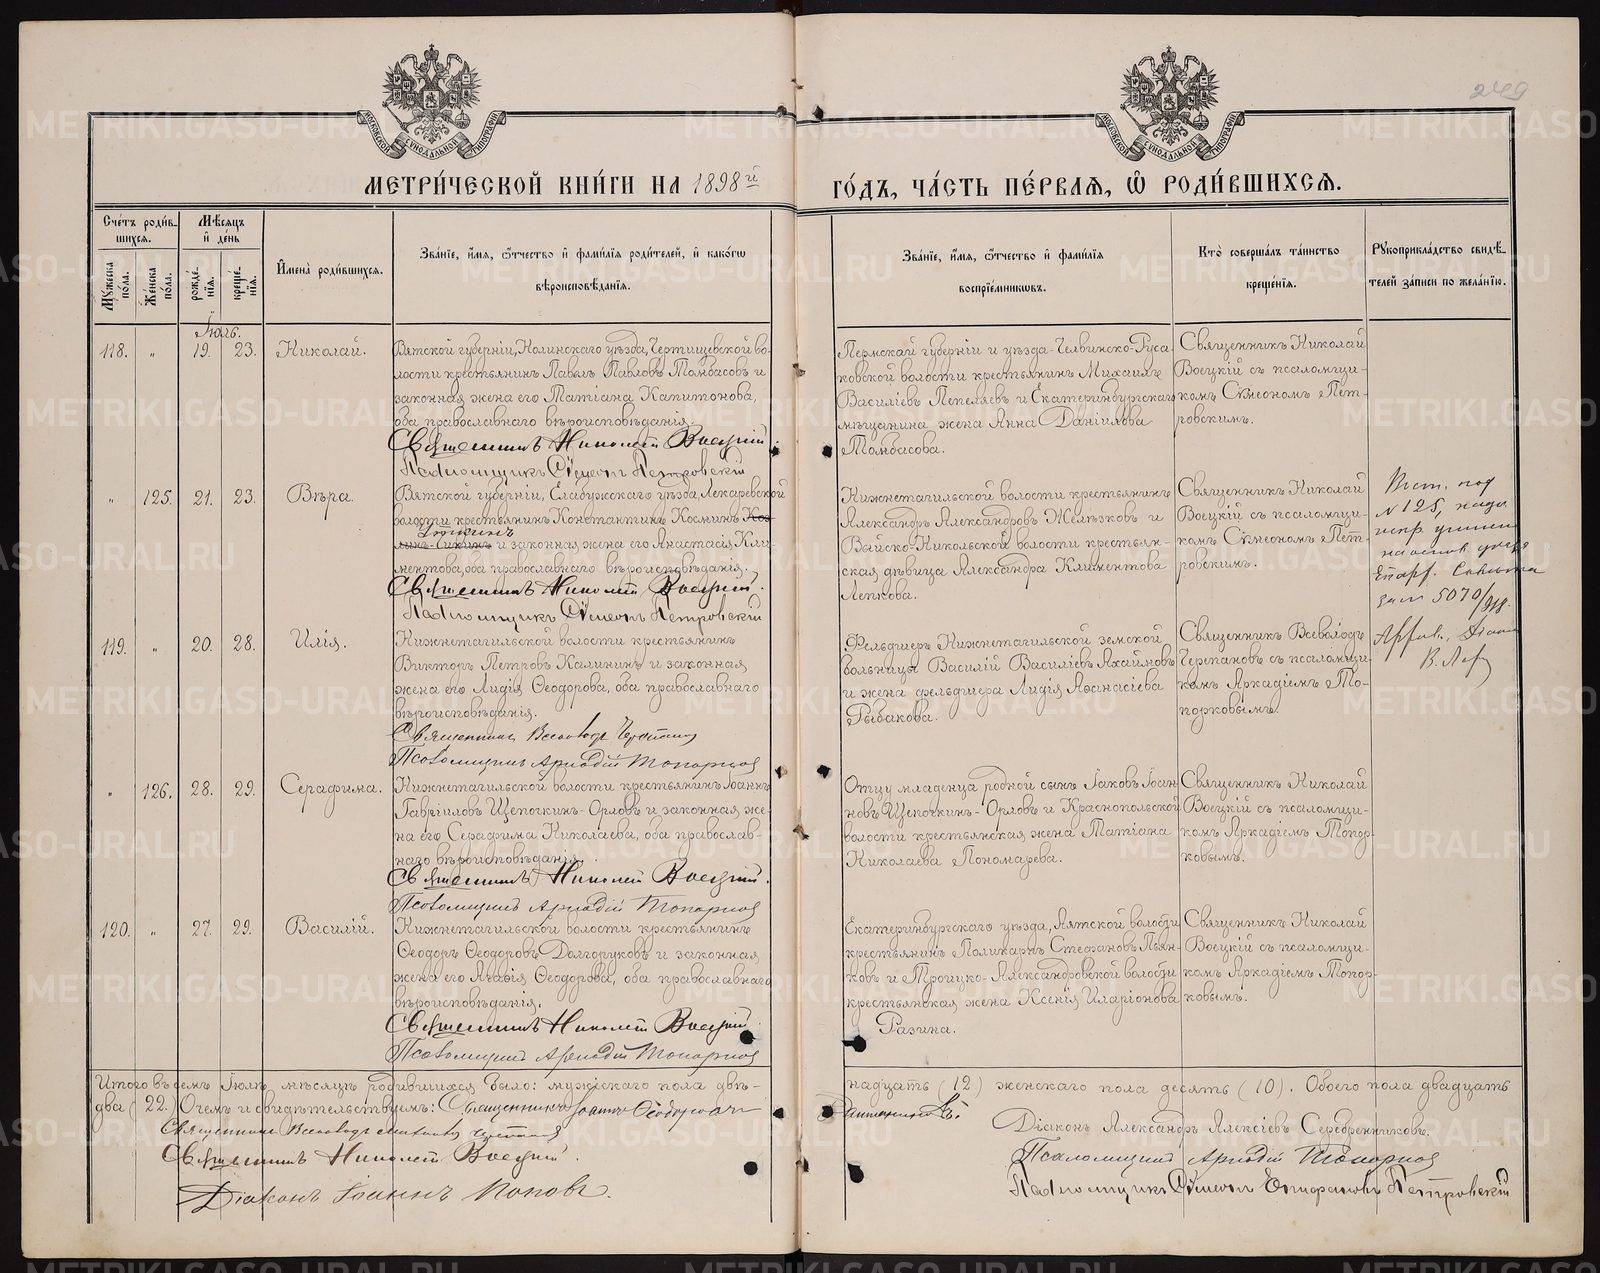 249
МОСКОВСКОЙ СѴНОДАЛЬНОЙ ТИПОГРАФІИ
МОСКОВСКОЙ СѴНОДАЛЬНОЙ ТИПОГРАФІИ
МЕТРИ́ЧЕСКОЙ КНИ́ГИ НА 1898й ГО́ДЪ, ЧА́СТЬ ПЕ́РВАЯ, Ѡ҆ РОДИ́ВШИХСЯ.
Сче́тъ роди́в-
шихся.
Мꙋжеска по́ла.
Же́нска по́ла.
Мѣ́сяцъ
и҆ де́нь
рожде́-
нїя.
креще́-
нїя.
И҆мена̀ роди́вшихся.
Зва́нїе, и҆́мя, ѻ҆́тчество и҆ фами́лїя роди́телей, и҆ како́гѡ
вѣроисповѣ́данїя.
Зва́нїе, и҆́мя, ѻ҆́тчество и҆ фами́лїя
воспрїе́мникѡвъ.
Кто̀ соверша́лъ та́инство
креще́нїя.
Рꙋкоприкла́дство свидѣ́-
телей за́писи по жела́нїю.
Іюль.
118. „ 19. 23. Николай.
Вятской губерніи, Нолинскаго уѣзда, Чертищевской во-
лости крестьянинъ Павелъ Павловъ Томбасовъ и
законная жена его Татіана Капитонова,
оба православнаго вѣроисповѣданія.
Священникъ Николай Воецкій.
Псаломщикъ Сѷмеонъ Петровскій
Пермской губерніи и уѣзда Челвинско-Руса-
ковской волости крестьянинъ Михаилъ
Василіевъ Пепеляевъ и Екатеринбургскаго
мѣщанина жена Анна Даніилова
Томбасова.
Священникъ Николай
Воецкій съ псаломщи-
комъ Сѷмеономъ Пет-
ровскимъ.
„ 125. 21. 23. Вѣра.
Вятской губерніи, Елабужскаго уѣзда, Лекаревской
волости крестьянинъ Константинъ Косминъ Коз-
Утюгинъ
и законная жена его Анастасія Кли-
ментова, оба православнаго вѣроисповѣданія.
Священникъ Николай Воецкій.
Псаломщикъ Сѷмеонъ Петровскій
Нижнетагильской волости крестьянинъ
Александръ Александровъ Желѣзковъ и
Выйско-Никольской волости крестьян-
ская дѣвица Александра Климентова
Лепкова.
Священникъ Николай
Воецкій съ псаломщи-
комъ Сѷмеономъ Пет-
ровскимъ.
под
№ 125, надп.
на основ. указа
Епарх. Совета
за № 5070/918.
119. „ 20. 28. Илія.
Нижнетагильской волости крестьянинъ
Викторъ Петровъ Калининъ и законная
жена его Лидія Ѳеодорова, оба православнаго
вѣроисповѣданія.
Священникъ Всеволодъ Черепановъ
Псаломщикъ Аркадій Топорковъ
Фельдшеръ Нижнетагильской земской
больницы Василій Василіевъ Яхаймовъ
и жена фельдшера Лидія Аѳанасіева
Рыбакова.
Священникъ Всеволодъ
Черепановъ съ псаломщи-
комъ Аркадіемъ То-
порковымъ.
„ 126. 28. 29. Серафима.
Нижнетагильской волости крестьянинъ Іоаннъ
Гавріиловъ Щепочкинъ-Орловъ и законная же-
на его Серафима Николаева, оба православ-
наго вѣроисповѣданія.
Священникъ Николай Воецкій.
Псаломщикъ Аркадій Топорковъ
Отцу младенца родной сынъ Іаковъ Іоан-
новъ Щепочкинъ-Орловъ и Краснопольской
волости крестьянская жена Татіана
Николаева Пономарева.
Священникъ Николай
Воецкій съ псаломщи-
комъ Аркадіемъ Топор-
ковымъ.
120. „ 27. 29. Василій.
Нижнетагильской волости крестьянинъ
Ѳеодоръ Ѳеодоровъ Долгоруковъ и законная
жена его Агавія Ѳеодорова, оба православнаго
вѣроисповѣданія.
Священникъ Николай Воецкій.
Псаломщикъ Аркадій Топорковъ
Екатеринбургскаго уѣзда, Аятской волости
крестьянинъ Поликарпъ Стефановъ Пьян-
ковъ и Троицко-Александровской волости
крестьянская жена Ксенія Иларіонова
Разина.
Священникъ Николай
Воецкій съ псаломщи-
комъ Аркадіемъ Топор-
ковымъ.
Итого въ семъ Іюлѣ мѣсяцѣ родившихся было: мужескаго пола двѣ-надцать (12) женскаго пола десять (10). Обоего пола двадцать
два (22.) О чемъ и свидѣтельствуемъ: Священникъ Іоаннъ
Священникъ Всеволодъ Черепановъ
Священникъ Николай Воецкій.
Діаконъ Іоаннъ Поповъ.
Діаконъ Александръ Алексіевъ Серебренниковъ.
Псаломщикъ Аркадій Топорковъ
Псаломщикъ Сѷмеонъ Епифановъ Петровскій
METRIKI.GASO-URAL.RU